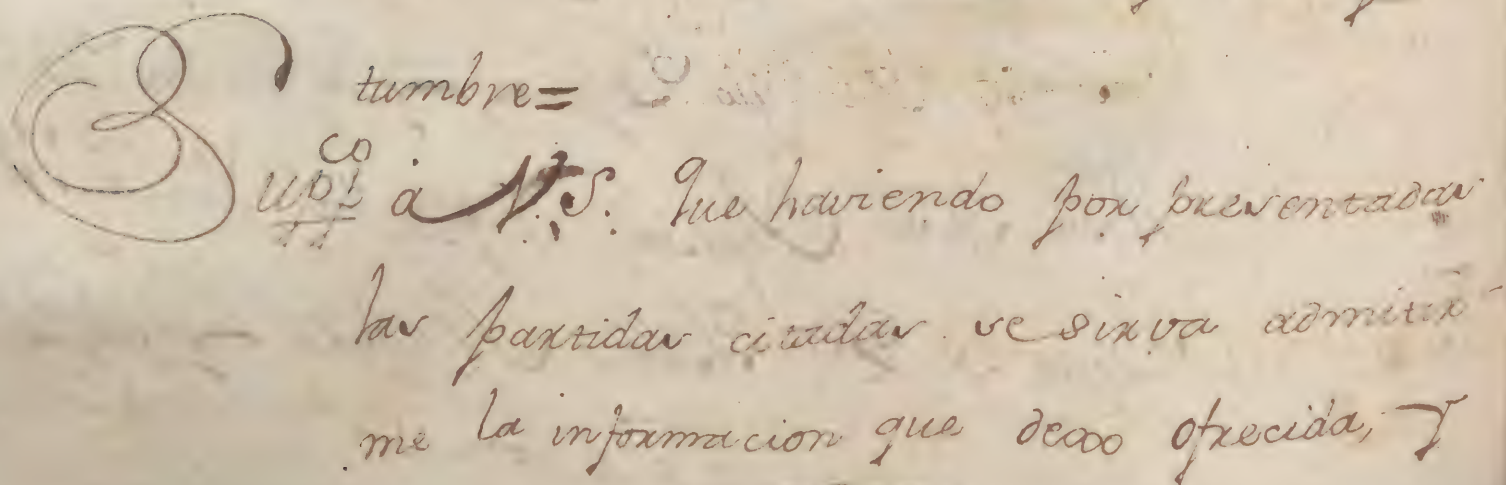 tumbre=
Supco à V.S. Que haviendo por presentadas
las partidas citadas se sirva admitir
me la informacion que dexo ofrecida, y